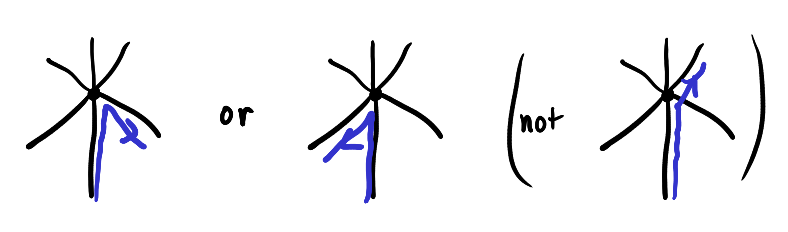 or (not )